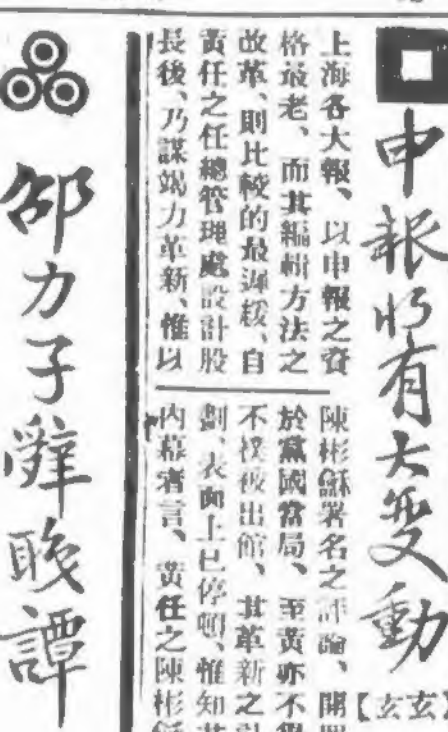 申報將有大变動
【玄玄】
上海各大報、以申報之資
格最老、而其編輯方法之
改革、則比較的最遲緩、自
黃任之任總管理處設計股
長後、乃謀竭力革新、惟以
陳彬龢署名之評論、開罪
於黨國當局、至黃亦不得
不被扳出館、其革新之計
劃、表面上已停頓、惟知其
內幕者言、黃任之陳彬龢
邵力子辭職譚